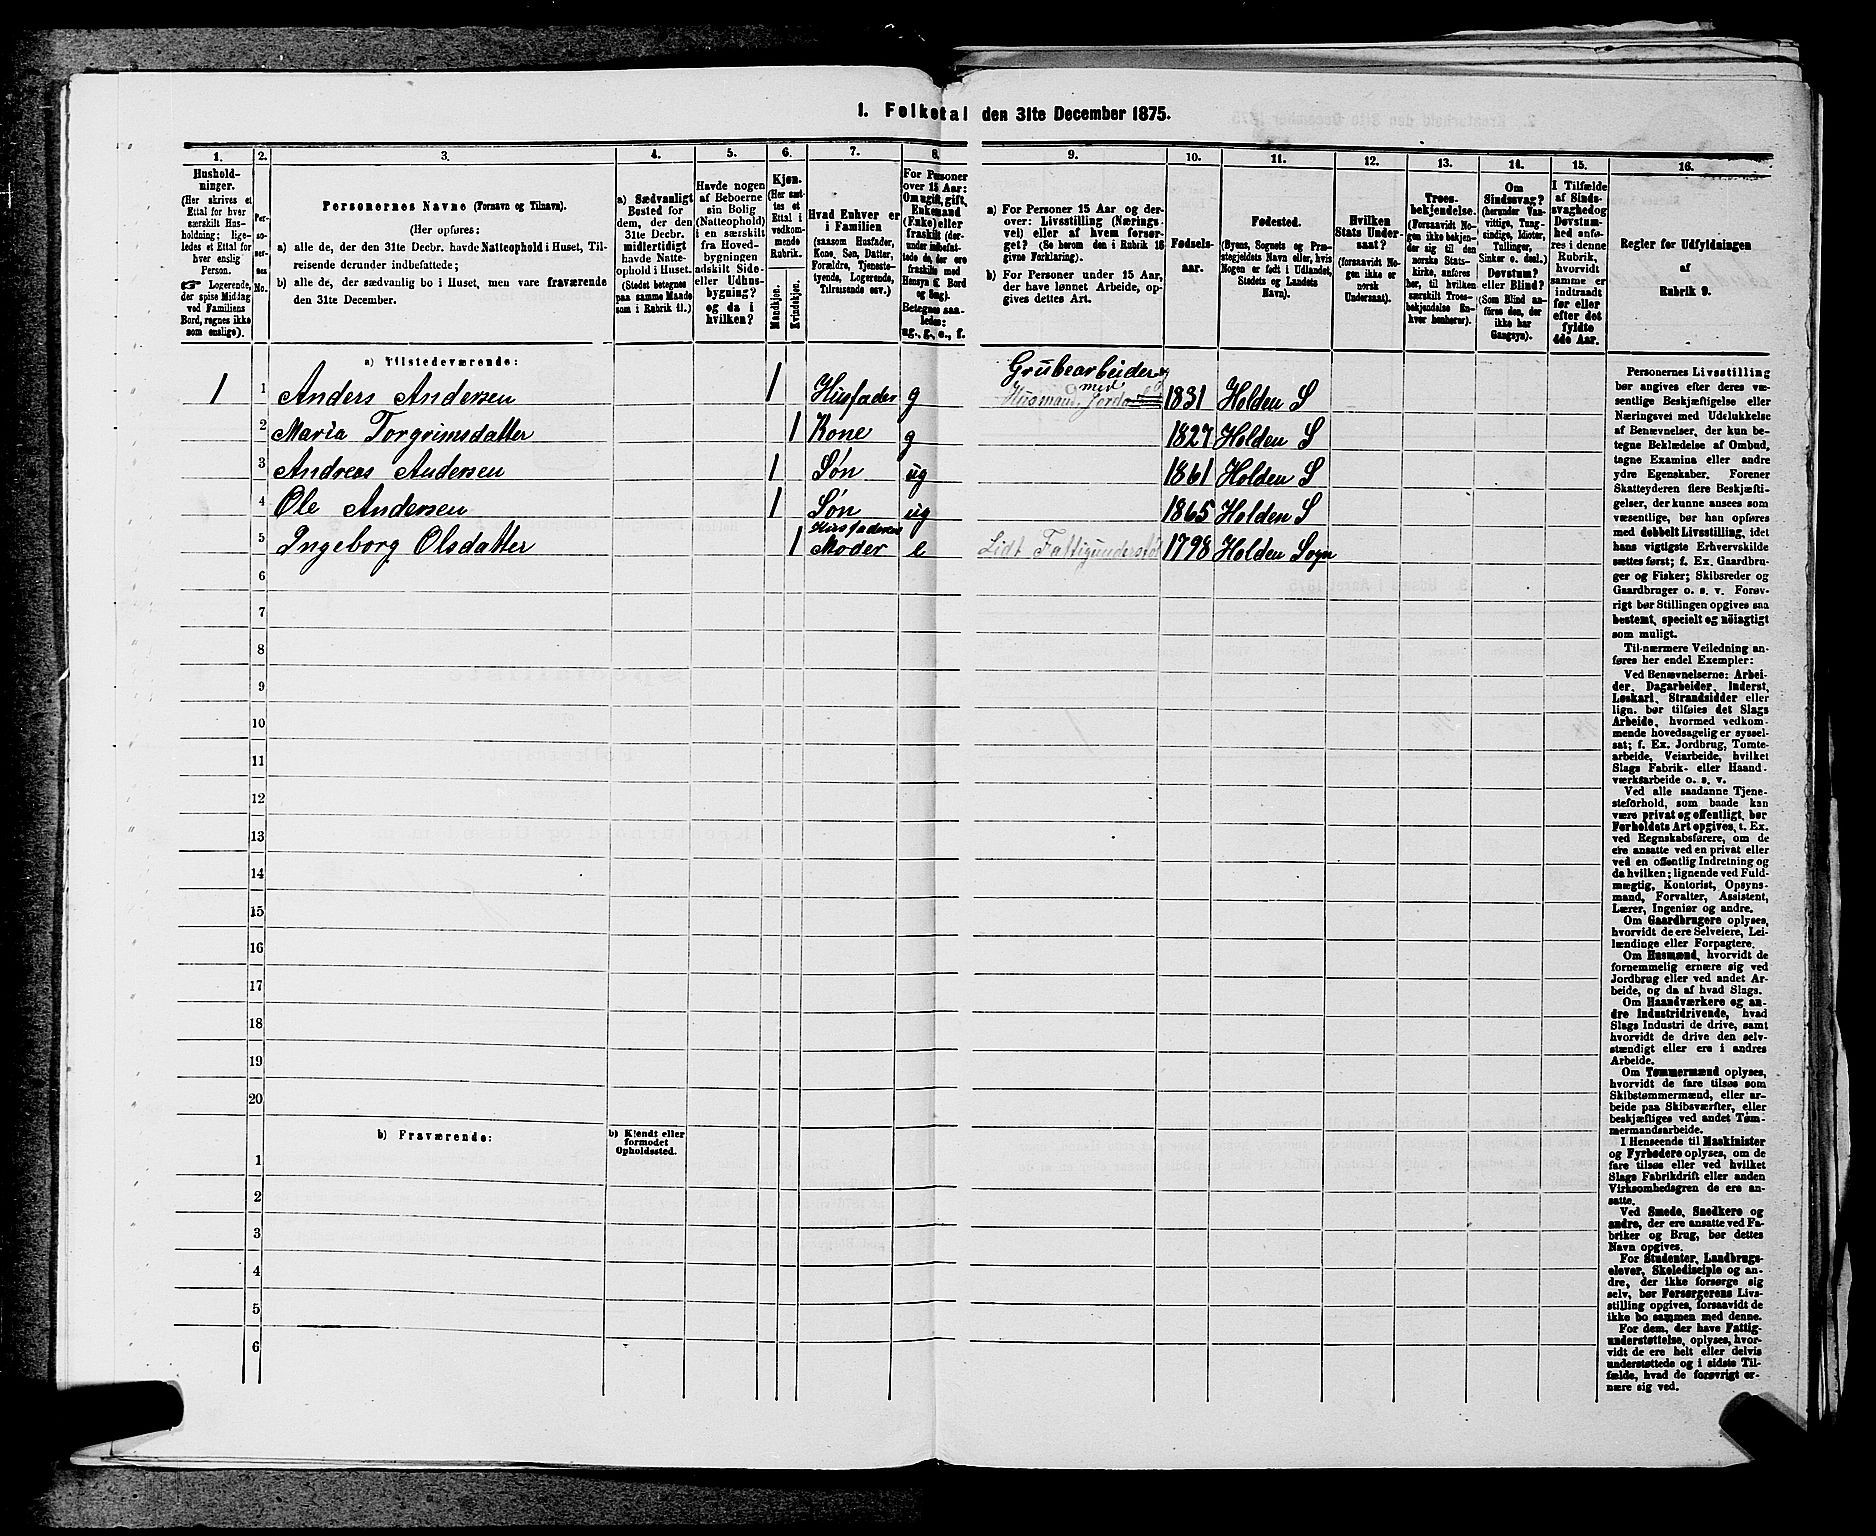 1. Folketal den 31te December 1875.
1.
2.
3.
4.
5.
6.
7.
8.
9.
10.
11.
12.
13.
14.
15.
16.
Hushold-
ninger.
(Her skrives et
Ettal for hver
særskilt Hus-
holdning; lige-
ledes et Ettal for
hver enslig
Person.
☞ Logerende,
der spise Middag
ved Familiens
Bord, regnes ikke
som enslige).
Per-
so-
ner-
nes
No.
Personernes Navne (Fornavn og Tilnavn).
(Her opføres:
a) alle de, der den 31te Decbr. havde Natteophold i Huset, Til-
reisende derunder indbefattede;
b) alle de, der sædvanlig bo i Huset, men vare fraværende
den 31te December.
a) Sædvanligt
Bosted for
dem, der den
31te Decbr.
midlertidigt
havde Natte-
ophold i Huset.
(Stedet betegnes
paa samme Maade
som i Rubrik 11.)
Havde nogen
af Beboerne
sin Bolig
(Natteophold)
i en særskilt
fra Hoved-
bygningen
adskilt Side-
eller Udhus-
bygning?
og da i
hvilken?
Kjøn.
(Her sæt-
tes et
Ettal i
vedkom-
mende
Rubrik.
Mandkjøn.
Kvindekjøn.
Hvad Enhver er
i Familien
(saasom Husfader,
Kone, Søn, Datter,
Forældre, Tjeneste-
tyende, Logerende,
Tilreisende osv.)
For Personer
over 15 Aar:
Om ugift, gift,
Enkemand
(Enke) eller
fraskilt (der-
under indbefat-
tede de, der ere
fraskilte med
Hensyn t. Bord
og Seng).
Betegnes saa-
ledes:
ug., g., e., f.
a) For Personer 15 Aar og der-
over: Livsstilling (Nærings-
vei) eller af hvem forsør-
get? (Se herom den i Rubrik 16
givne Forklaring).
b) For Personer under 15 Aar,
der have lønnet Arbeide, op-
gives dettes Art.
Fødsels-
aar.
Fødested.
(Byens, Sognets og Præ-
stegjeldets Navn eller, hvis
Nogen er født i Udlandet,
Stedets og Landets
Navn).
Hvilken
Stats Under-
saat?
(forsaavidt No-
gen ikke er
norsk
Undersaat).
Troes-
bekjendelse.
(Forsaavidt No-
gen ikke bekjen-
der sig til den
norske Stats-
kirke, anføres
her, til hvilken
særskilt Troes-
bekjendelse En-
hver henhører).
Om
Sindssvag?
(herunder Van-
vittige, Tung-
sindige, Idioter,
Tullinger,
Sinker o. desl.).
Døvstum?
eller Blind?
(Som Blind an-
føres den, der
ikke har
Gangsyn).
I Tilfælde
af Sinds-
svaghed og
Døvstum-
hed anfø-
res i denne
Rubrik,
hvorvidt
samme er
indtraadt
før eller
efter det
fyldte
4de Aar.
Regler for Udfyldningen
af
Rubrik 9.
a) Tilstedeværende:
Grubearbeider og
1 1 Anders Andersen 1 Husfader g Husmand med Jord 1831 Holden S
2 Maria Torgrimsdatter 1 Kone g 1827 Holden S
3 Andreas Andersen 1 Søn ug 1861 Holden S
4 Ole Andersen 1 Søn ug 1865 Holden S
Husfaderens
5 Ingeborg Olsdatter 1 Moder e Lidt Fattigunderstøt 1798 Holden Sogn
6
7
8
9
10
11
12
13
14
15
16
17
18
19
20
b) Fraværende:
b) Kjendt eller
formodet
Opholdssted.
1
2
3
4
5
6
Personernes Livsstilling
bør angives efter deres væ-
sentlige Beskjæftigelse eller
Næringsvei med Udelukkelse
af Benævnelser, der kun be-
tegne Beklædelse af Ombud,
tagne Examina eller andre
ydre Egenskaber. Forener
Skatteyderen flere Beskjæfti-
gelser, der kunne ansees som
væsentlige, bør han opføres
med dobbelt Livsstilling, idet
hans vigtigste Erhvervskilde
sættes først; f. Ex. Gaardbru-
ger og Fisker; Skibsreder og
Gaardbruger o. s. v. Forøv-
rigt bør Stillingen opgives saa
bestemt, specielt og nøiagtigt
som muligt.
Til nærmere Veiledning an-
føres her endel Exempler:
Ved Benævnelserne: Arbei-
der, Dagarbeider, Inderst,
Løskarl, Strandsidder eller
lign. bør tilføies det Slags
Arbeide, hvormed vedkom-
mende hovedsagelig er syssel-
sat; f. Ex. Jordbrug, Tomte-
arbeide, Veiarbeide, hvilket
Slags Fabrik- eller Haand-
værksarbeide o. s. v.
Ved alle saadanne Tjene-
steforhold, som baade kan
være privat og offentligt, bør
Forholdets Art opgives, t. Ex.
ved Regnskabsførere, om de
ere ansatte ved en privat eller
ved en offentlig Indretning og
da hvilken; lignende ved Fuld-
mægtig, Kontorist, Opsyns-
mand, Forvalter, Assistent,
Lærer, Ingeniør og andre.
Om Gaardbrugere oplyses,
hvorvidt de ere Selveiere, Lei-
lændinge eller Forpagtere.
Om Husmænd, hvorvidt de
fornemmelig ernære sig ved
Jordbrug eller ved andet Ar-
beide, og da af hvad Slags.
Om Haandværkere og an-
dre Industridrivende, hvad
Slags Industri de drive, samt
hvorvidt de drive den selv-
stændigt eller ere i andres
Arbeide.
Om Tømmermænd oplyses,
hvorvidt de fare tilsøs som
Skibstømmermænd, eller ar-
beide paa Skibsværfter, eller
beskjæftiges ved andet Tøm-
mermandsarbeide.
I Henseende til Maskinister
og Fyrbødere oplyses, om de
fare tilsøs eller ved hvilket
Slags Fabrikdrift eller anden
Virksomhedsgren de ere an-
satte.
Ved Smede, Snedkere og
andre, der ere ansatte ved Fa-
briker og Brug, bør dettes
Navn opgives.
For Studenter, Landbrugs-
elever, Skoledisciple og an-
dre, der ikke forsørge sig
selv, bør Forsørgerens Livs-
stilling opgives, forsaavidt de
ikke bo sammen med denne.
For dem, der have Fattig-
understøttelse, oplyses, hvor-
vidt de ere helt eller delvis
understøttede og i sidste Til-
fælde, hvad de forøvrigt er-
nære sig ved.